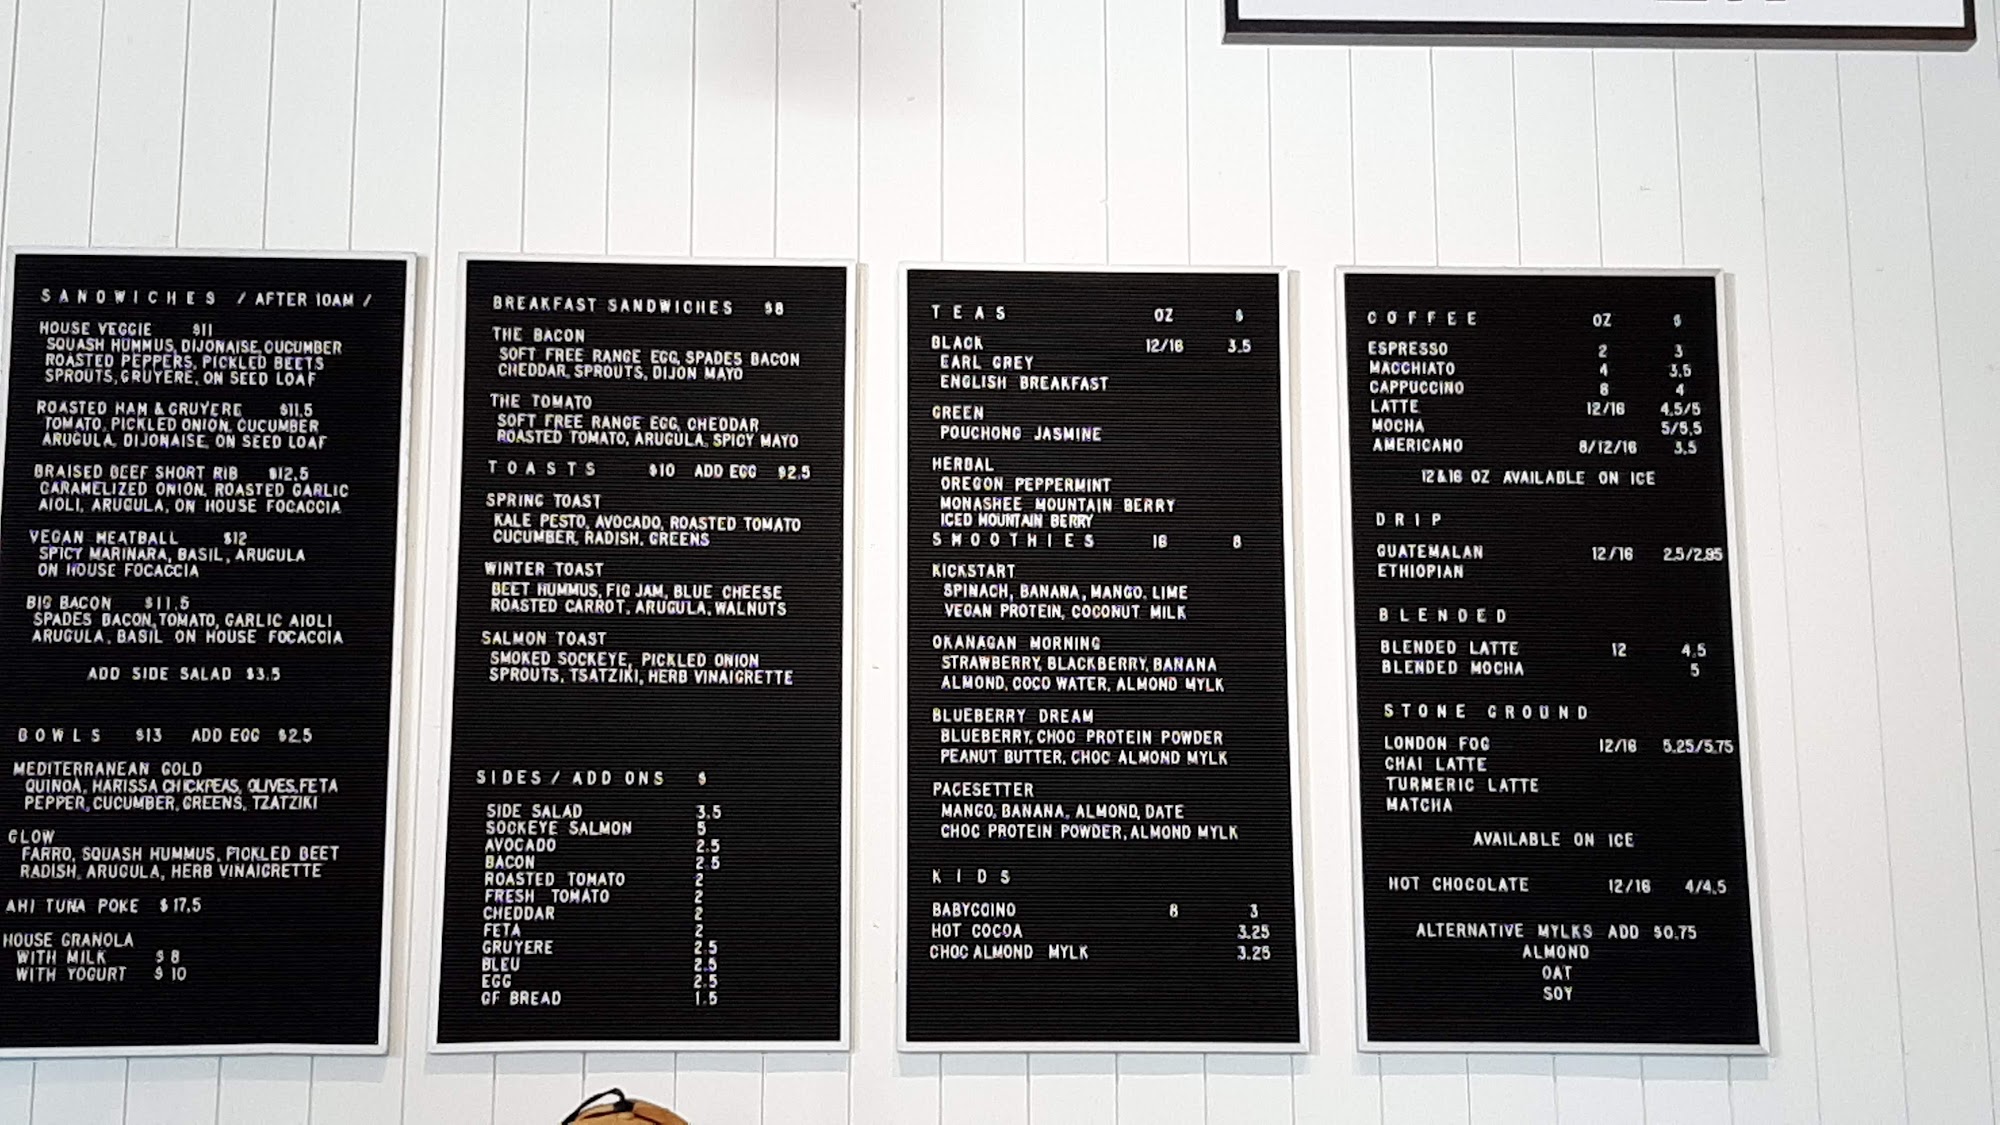 SANDWICHES / AFTER 10AM /
HOUSE VEGGIE $11
SQUASH HUMMUS, DIJONAISE, CUCUMBER
ROASTED PEPPERS, PICKLED BEETS
SPROUTS, GRUYERE, ON SEED LOAF
ROASTED HAM & GRUYERE $11.5
TOMATO, PICKLED ONION, CUCUMBER
ARUGULA, DIJONAISE, ON SEED LOAF
BRAISED BEEF SHORT RIB $12.5
CARAMELIZED ONION, ROASTED GARLIC
AIOLI, ARUGULA, ON HOUSE FOCACCIA
VEGAN MEATBALL $12
SPICY MARINARA, BASIL, ARUGULA
ON HOUSE FOCACCIA
BIG BACON $11.5
SPADES BACON, TOMATO, GARLIC AIOLI
ARUGULA, BASIL ON HOUSE FOCACCIA
ADD SIDE SALAD $3.5
BOWLS $13 ADD EGG $2.5
MEDITERRANEAN GOLD
QUINOA, HARISSA CHICKPEAS, OLIVES, FETA
PEPPER, CUCUMBER, GREENS, TZATZIKI
GLOW
FARRO, SQUASH HUMMUS, PICKLED BEET
RADISH, ARUGULA, HERB VINAIGRETTE
AHI TUNA POKE $17.5
HOUSE GRANOLA
WITH MILK $8
WITH YOGURT $10
BREAKFAST SANDWICHES $8
THE BACON
SOFT FREE RANGE EGG, SPADES BACON
CHEDDAR, SPROUTS, DIJON MAYO
THE TOMATO
SOFT FREE RANGE EGG, CHEDDAR
ROASTED TOMATO, ARUGULA, SPICY MAYO
TOASTS $10 ADD EGG $2.5
SPRING TOAST
KALE PESTO, AVOCADO, ROASTED TOMATO
CUCUMBER, RADISH, GREENS
WINTER TOAST
BEET HUMMUS, FIG JAM, BLUE CHEESE
ROASTED CARROT, ARUGULA, WALNUTS
SALMON TOAST
SMOKED SOCKEYE, PICKLED ONION
SPROUTS, TSATZIKI, HERB VINAIGRETTE
SIDES / ADD ONS $
SIDE SALAD 3.5
SOCKEYE SALMON 5
AVOCADO 2.5
BACON 2.5
ROASTED TOMATO 2
FRESH TOMATO 2
CHEDDAR 2
FETA 2
GRUYERE 2.5
BLEU 2.5
EGG 2.5
GF BREAD 1.5
TEAS OZ $
BLACK 12/16 3.5
EARL GREY
ENGLISH BREAKFAST
GREEN
POUCHONG JASMINE
HERBAL
OREGON PEPPERMINT
MONASHEE MOUNTAIN BERRY
ICED MOUNTAIN BERRY
SMOOTHIES 16 8
KICKSTART
SPINACH, BANANA, MANGO, LIME
VEGAN PROTEIN, COCONUT MILK
OKANAGAN MORNING
STRAWBERRY, BLACKBERRY, BANANA
ALMOND, COCO WATER, ALMOND MYLK
BLUEBERRY DREAM
BLUEBERRY, CHOC PROTEIN POWDER
PEANUT BUTTER, CHOC ALMOND MYLK
PACESETTER
MANGO, BANANA, ALMOND, DATE
CHOC PROTEIN POWDER, ALMOND MYLK
KIDS
BABYCCINO 8 3
HOT COCOA 3.25
CHOC ALMOND MYLK 3.25
COFFEE OZ $
ESPRESSO 2 3
MACCHIATO 4 3.5
CAPPUCCINO 8 4
LATTE 12/16 4.5/5
MOCHA 5/5.5
AMERICANO 8/12/16 3.5
12&16 OZ AVAILABLE ON ICE
DRIP
GUATEMALAN 12/16 2.5/2.95
ETHIOPIAN
BLENDED
BLENDED LATTE 12 4.5
BLENDED MOCHA 5
STONE GROUND
LONDON FOG 12/16 5.25/5.75
CHAI LATTE
TURMERIC LATTE
MATCHA
AVAILABLE ON ICE
HOT CHOCOLATE 12/16 4/4.5
ALTERNATIVE MYLKS ADD $0.75
ALMOND
OAT
SOY